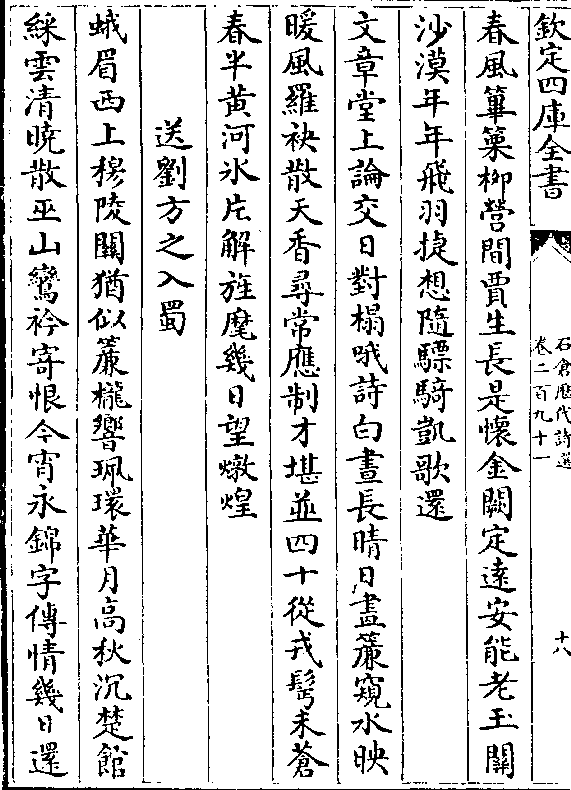 欽定四庫全書
石倉歷代詩選
卷二百九十一
十八
春風篳篥柳營間賈生長是懷金闕定遠安能老玉關
沙漠年年飛羽捷想隨驃騎凱歌還
文章堂上論交日對榻哦詩白晝長晴日畫簾窺水映
暖風羅袂散天香尋常應制才堪並四十從戎鬂未蒼
春半黃河氷片解旌麾幾日望燉煌
送劉方之入蜀
蛾眉西上穆陵關猶似簾櫳響珮環華月高秋沉楚館
綵雲清曉散巫山鸞衿寄恨今宵永錦字傳情幾日還